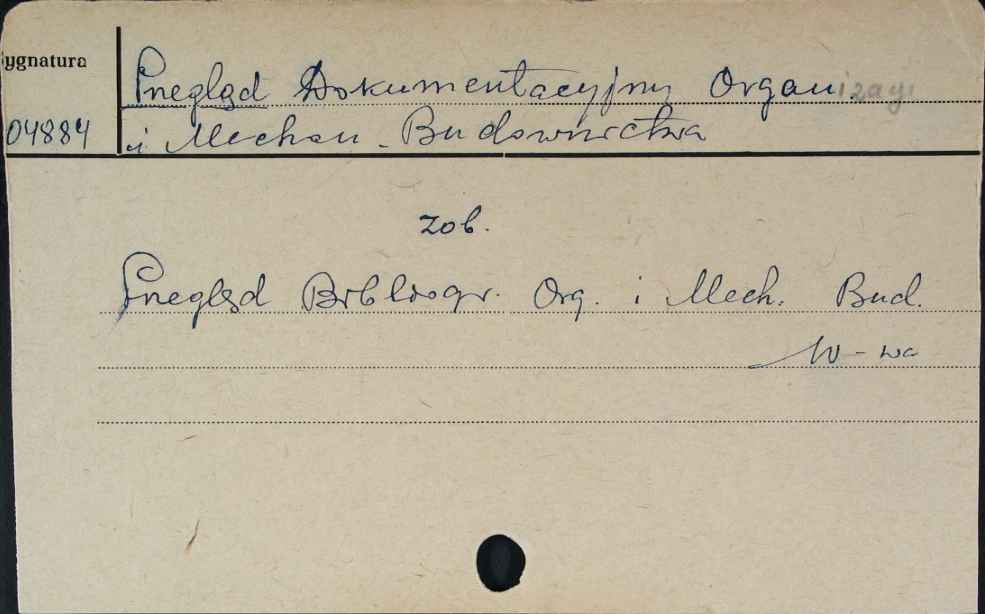 Sygnatura
Przegląd Dokumentacyjny Organizacji
04884
i Mechan. Budownictwa
zob.
Przegląd Bibliogr. Org. i Mech. Bud.
W-wa